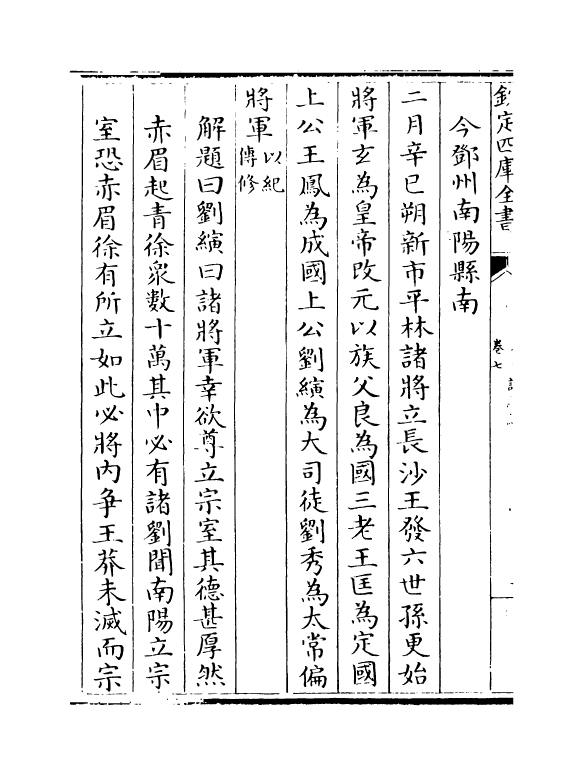 欽定四庫全書
卷七
今鄧州南陽縣南
二月辛巳朔新市平林諸將立長沙王發六世孫更始
將軍玄為皇帝改元以族父良為國三老王匡為定國
上公王鳳為成國上公劉縯為大司徒劉秀為太常偏
將軍以紀
傳修
解題曰劉縯曰諸將軍幸欲尊立宗室其德甚厚然
赤眉起青徐衆數十萬其中必有諸劉聞南陽立宗
室恐赤眉徐有所立如此必將內爭王莽未滅而宗